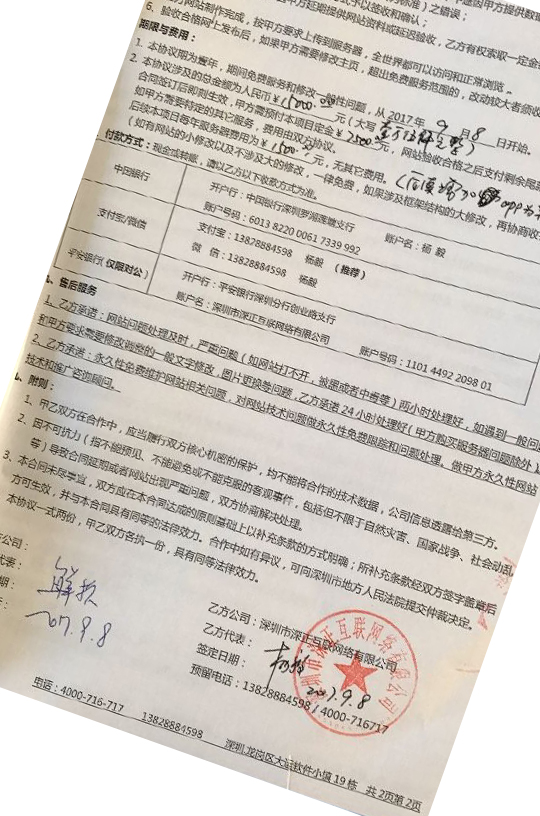 6. 验收合格网上发布后，如果甲方需要修改主页，超出免费服务范围的，改动较大者须收
按甲方要求上传到服务器，全世界都可以访问和正常浏览。
期限与费用：
1. 本协议期为壹年，期间免费服务和修改一般性问题，从 2017年 9 月 8 日开始。
2. 本协议涉及的总金额为人民币￥15000.00 元（大写
合同签订后即刻生效，甲方需预付本项目定金￥2500 元，网站验收合格之后支付剩余尾款
如甲方需要特定的其它服务，费用由双方协议。
后续本项目每年服务器费用为￥1500.00元，无其它费用。
（如有网站的小修改以及不涉及大的修改，一律免费，如果涉及框架结构的大修改，再协商收
付款方式：现金或转账，请以乙方以下收款方式为准。
中国银行
开户行：中国银行深圳罗湖莲塘支行
账户号码：6013 8220 0061 7339 992
账户名：杨 毅
支付宝/微信
支付宝：13828884598 杨毅
微 信：13828884598 杨毅 （推荐）
平安银行(仅限对公)
开户行：平安银行深圳分行创业路支行
账户名：深圳市深正互联网络有限公司
账户号码：1101 4492 2098 01
售后服务
1、乙方承诺：网站问题处理及时，严重问题（如网站打不开，被黑或者中毒等）两小时处理好，如遇到一般问
和甲方要求需要修改调整的一般文字修改，图片更换等问题，乙方承诺24小时处理好(甲方购买服务器问题除外)
2、乙方承诺：永久性免费维护网站相关问题，对网站技术问题做永久性免费跟踪和问题处理。做甲方永久性网站
技术和推广咨询顾问。
附则：
1、甲乙双方在合作中，应当履行双方核心机密的保护，均不能将合作的技术数据，公司信息透露给第三方。
2、因不可抗力（指不能预见、不能避免或不能克服的客观事件，包括但不限于自然灾害、国家战争、社会动乱
等）导致合同延期或者网站出现严重问题，双方协商解决处理。
3、本合同未尽事业，双方应在本合同达成的原则基础上以补充条款的方式明确；所补充条款经双方签字盖章后
方可生效，并与本合同具有同等的法律效力。合作中如有异议，可向深圳市地方人民法院提交仲裁决定。
本协议一式两份，甲乙双方各执一份，具有同等法律效力。
公司：
代表：
期：
2017.9.8
乙方公司：深圳市深正互联网络有限公司
乙方代表：杨毅
签定日期：2017.9.8
预留电话：13828884598 / 4000-716717
深圳市深正互联网络有限公司
电话：4000-716-717 13828884598
深圳.龙岗区大运软件小镇 19 栋 共 2页第 2页